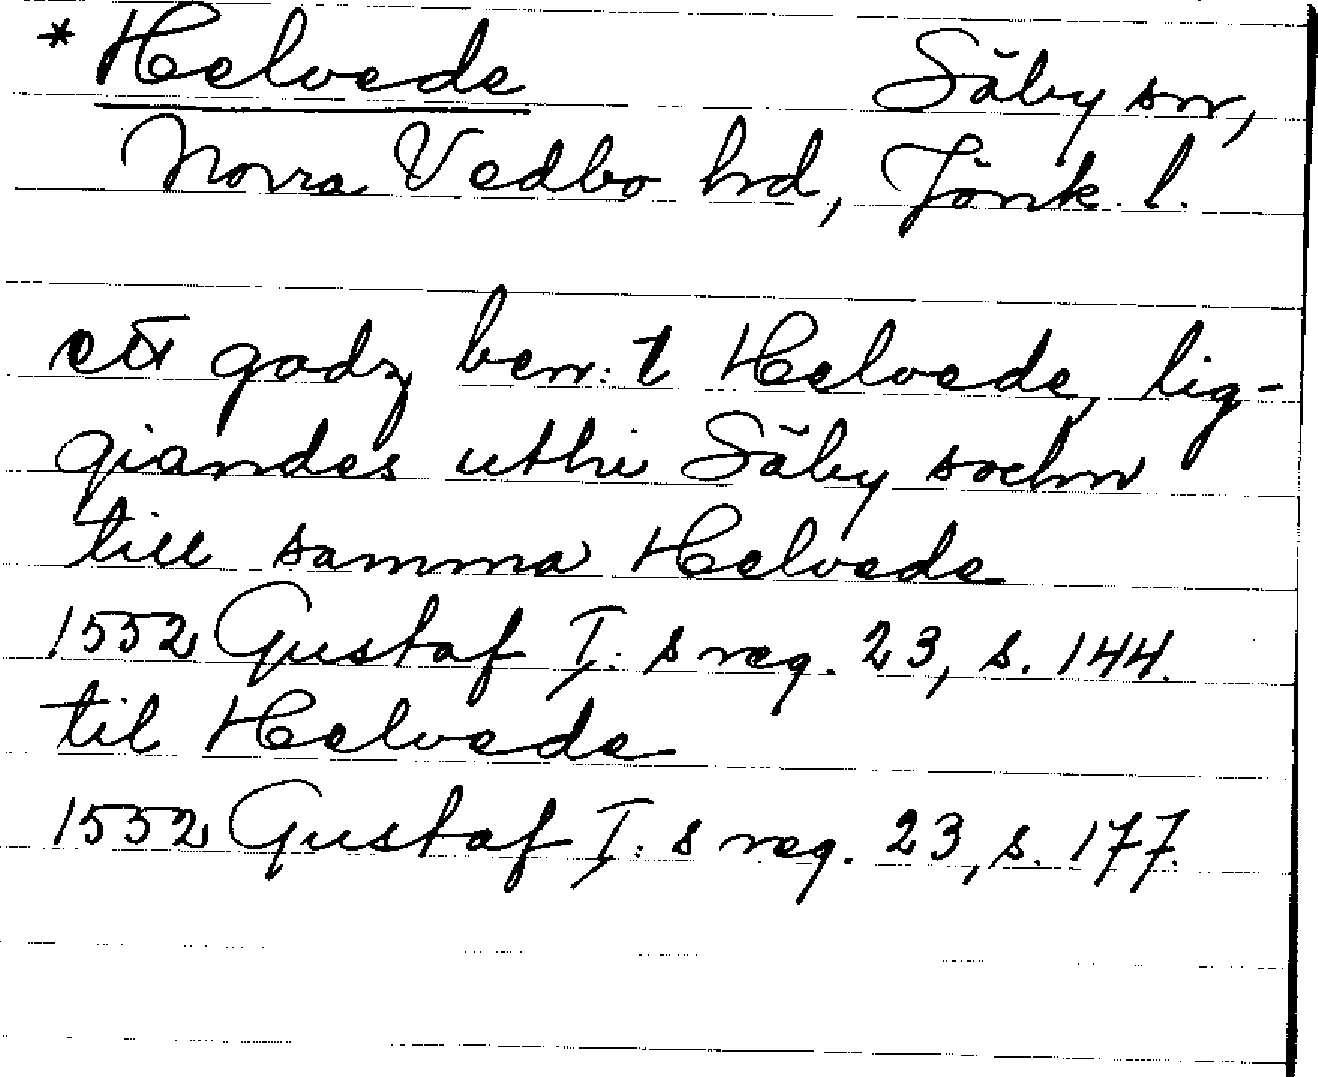 * Helvede Säby sn,
Norra Vedbo hrd, Jönk. l.
ett godz ben: t Helvede, lig-
giandes uthi Säby sochn
till samma Helvede
1552 Gustaf I: s reg. 23, s. 144.
til Helvede
1552 Gustaf I: s reg. 23, s. 177.